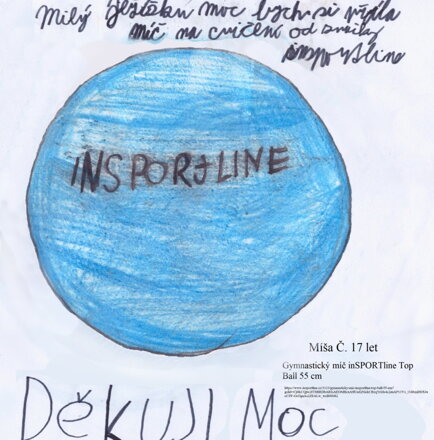 Milý ježíšku moc bych si přála
míč na cvičení od značky
insportline
INSPORTLINE
Míša Č. 17 let
Gymnastický míč inSPORTline Top
Ball 55 cm
DěkuJI Moc